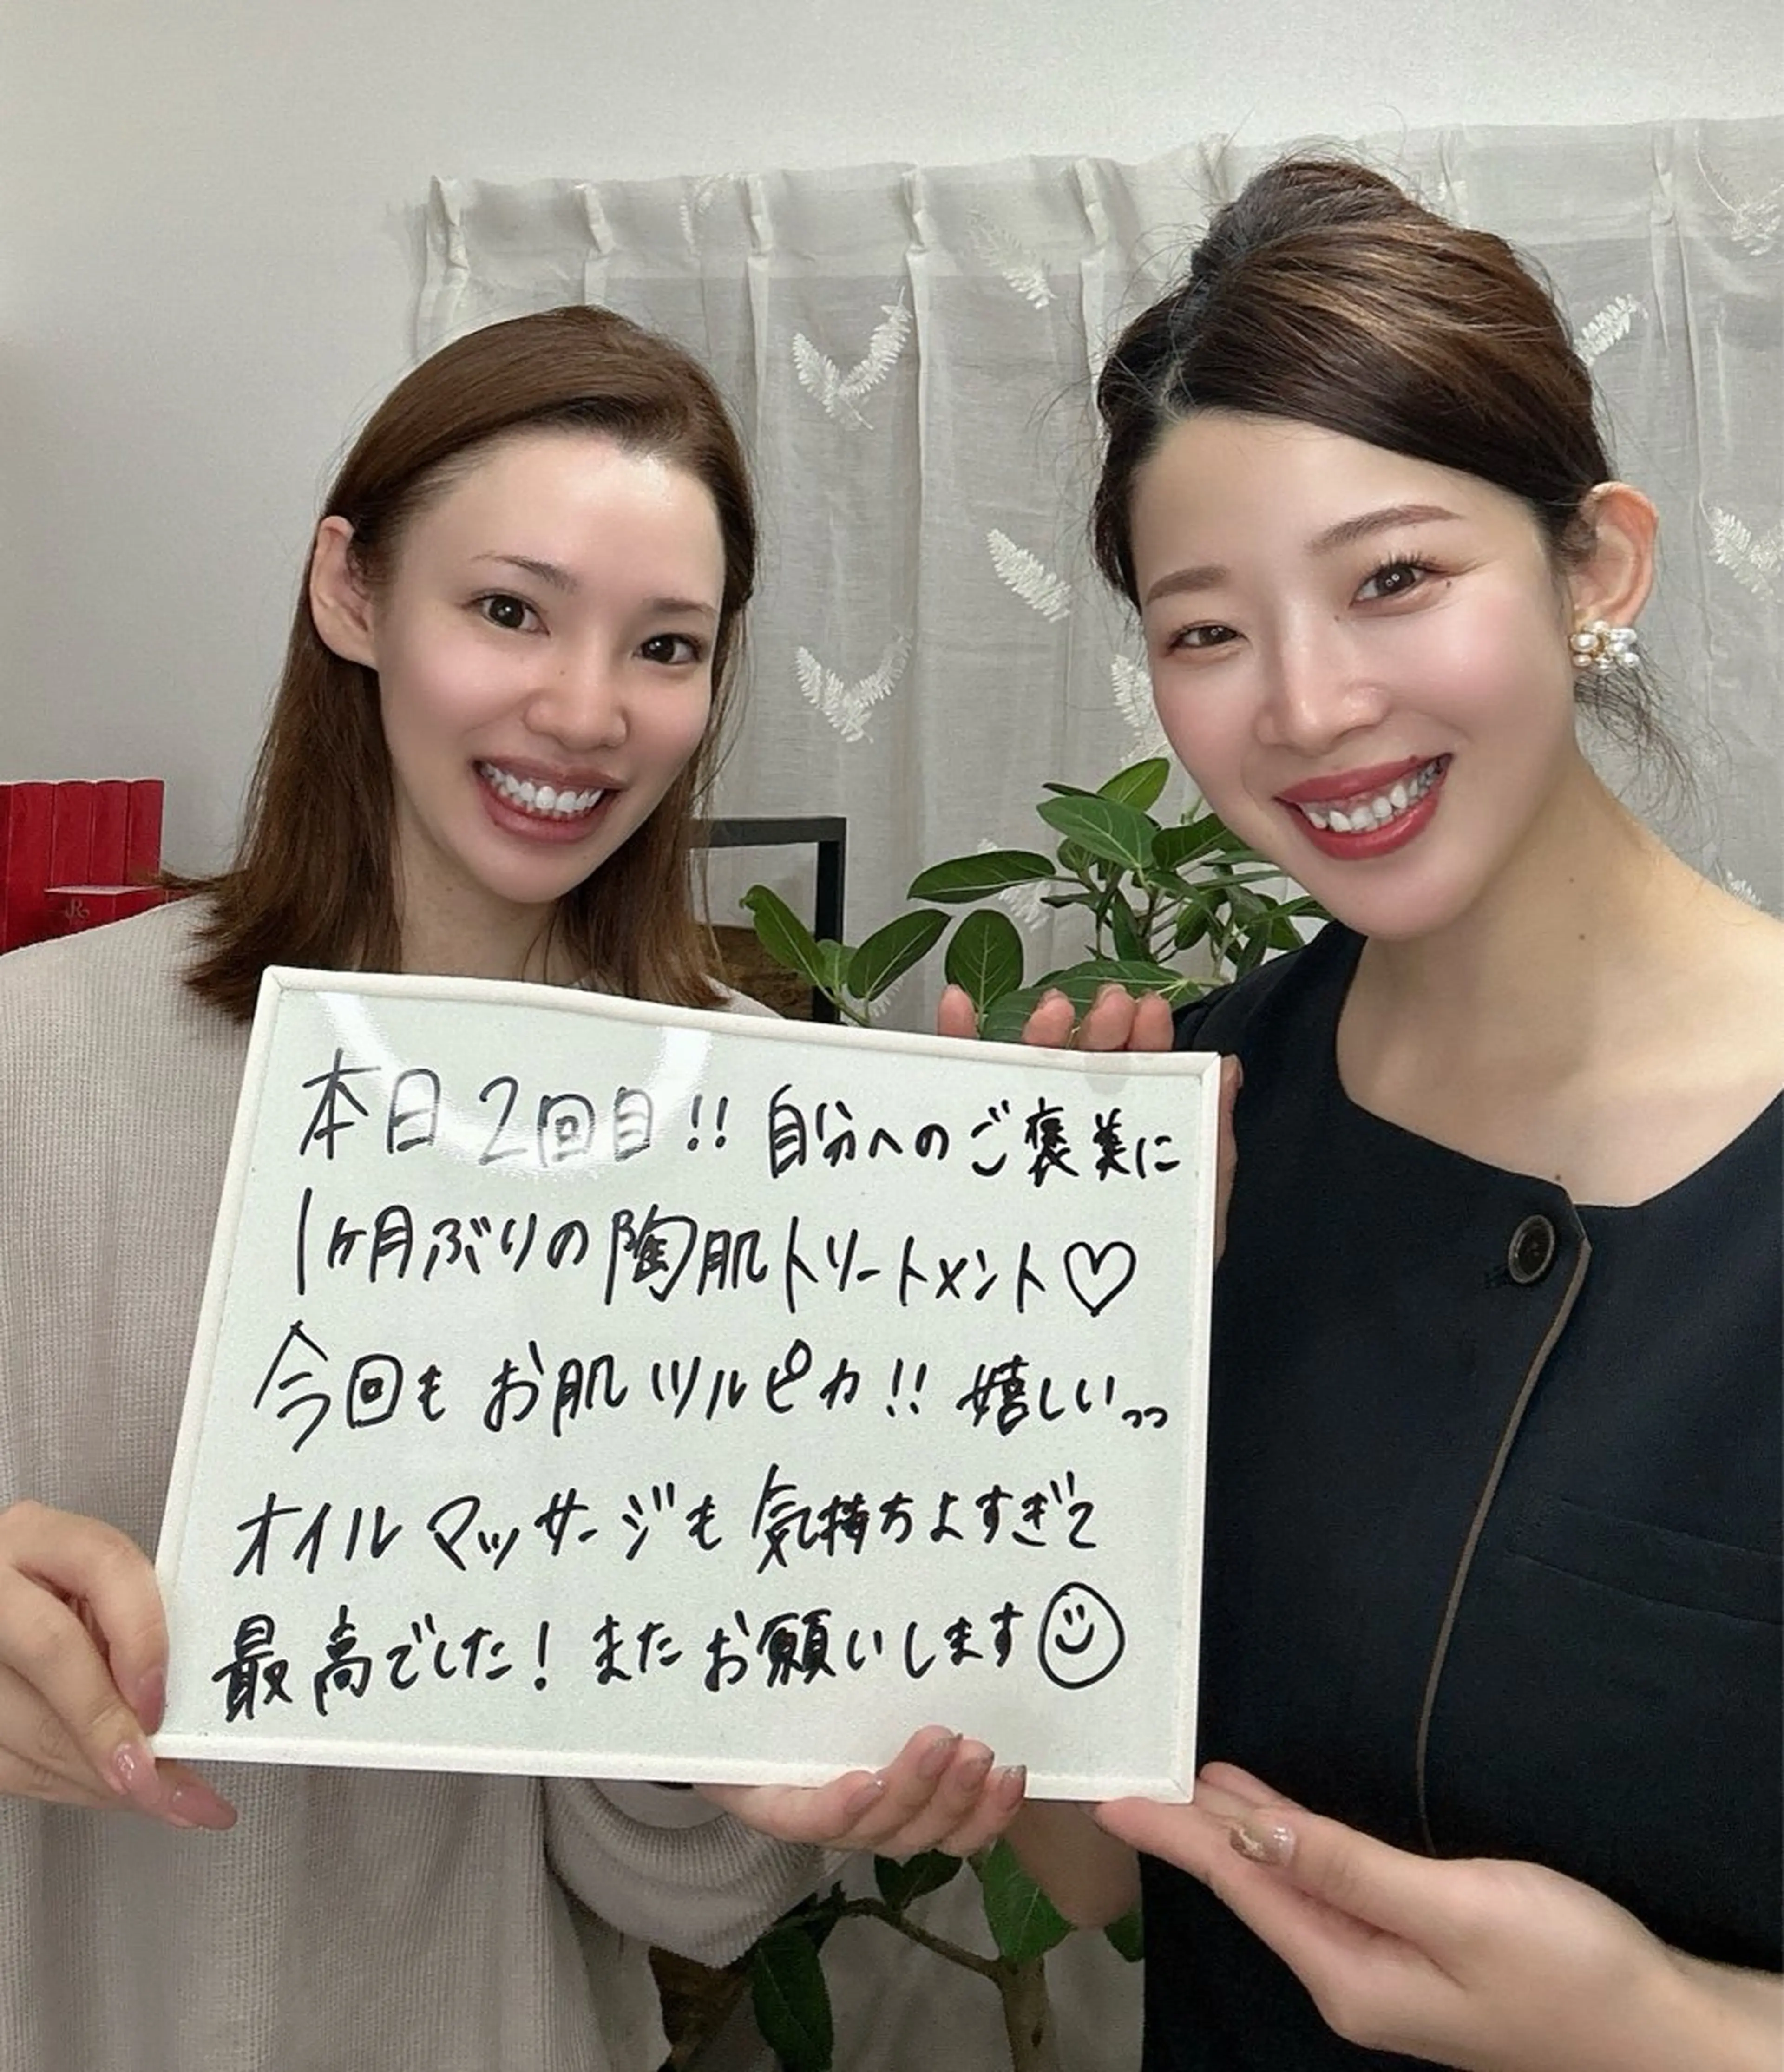 本日2回目!! 自分へのご褒美に
1ヶ月ぶりの陶肌トリートメント♡
今回もお肌ツルピカ!! 嬉しいっっ
オイルマッサージも気持ちよすぎて
最高でした! またお願いします☺